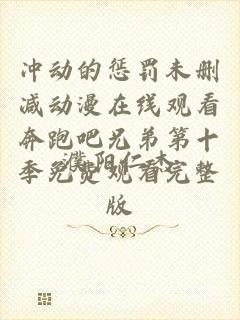 冲动的惩罚未删
减动漫在线观看
奔跑吧兄弟第十
季免费观看完整
版
濮阳仁杰